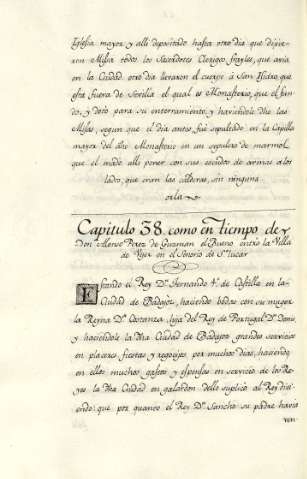 Iglesia mayor y alli depositado hasta otro dia que dixe=
ron Missa todos los Sacerdotes Clerigos frayles, que avia
en la Ciudad. otro dia llevaron el cuerpo à San Isidro, que
esta fuera de Sevilla el qual es Monasterio, que el fun=
do, y doto para su enterramiento, y haviendole dho las
Missas, segun que el dia antes fué sepultado en la Capilla
mayor del dho Monasterio en un sepulcro de marmol,
que el mandò alli poner con sus escudos de armas a los
lados, que eran las calderas, sin ninguna
orla
Capitulo 38. como en tiempo de
Don Alonso Perez de Guzman el Bueno entrò la Villa
de Vejer en el Senorio de S. Lucar
Estando el Rey Dn. Fernando 4º. de Castilla en la
Ciudad de Badajoz, haviendo bodas con su muger
la Reyna Da. Costanza hija del Rey de Portugal Dn. Donis,
y haciendole la dha Ciudad de Badajoz grandes servicios
en placeres fiestas y regocijos por muchos dias, haciendo
en ellos muchos gastos y espensas en servicio de los Re=
yes la dha Ciudad en galardon dello suplicò al Rey dici=
endo: que por quanto el Rey Dn. Sancho su padre havia